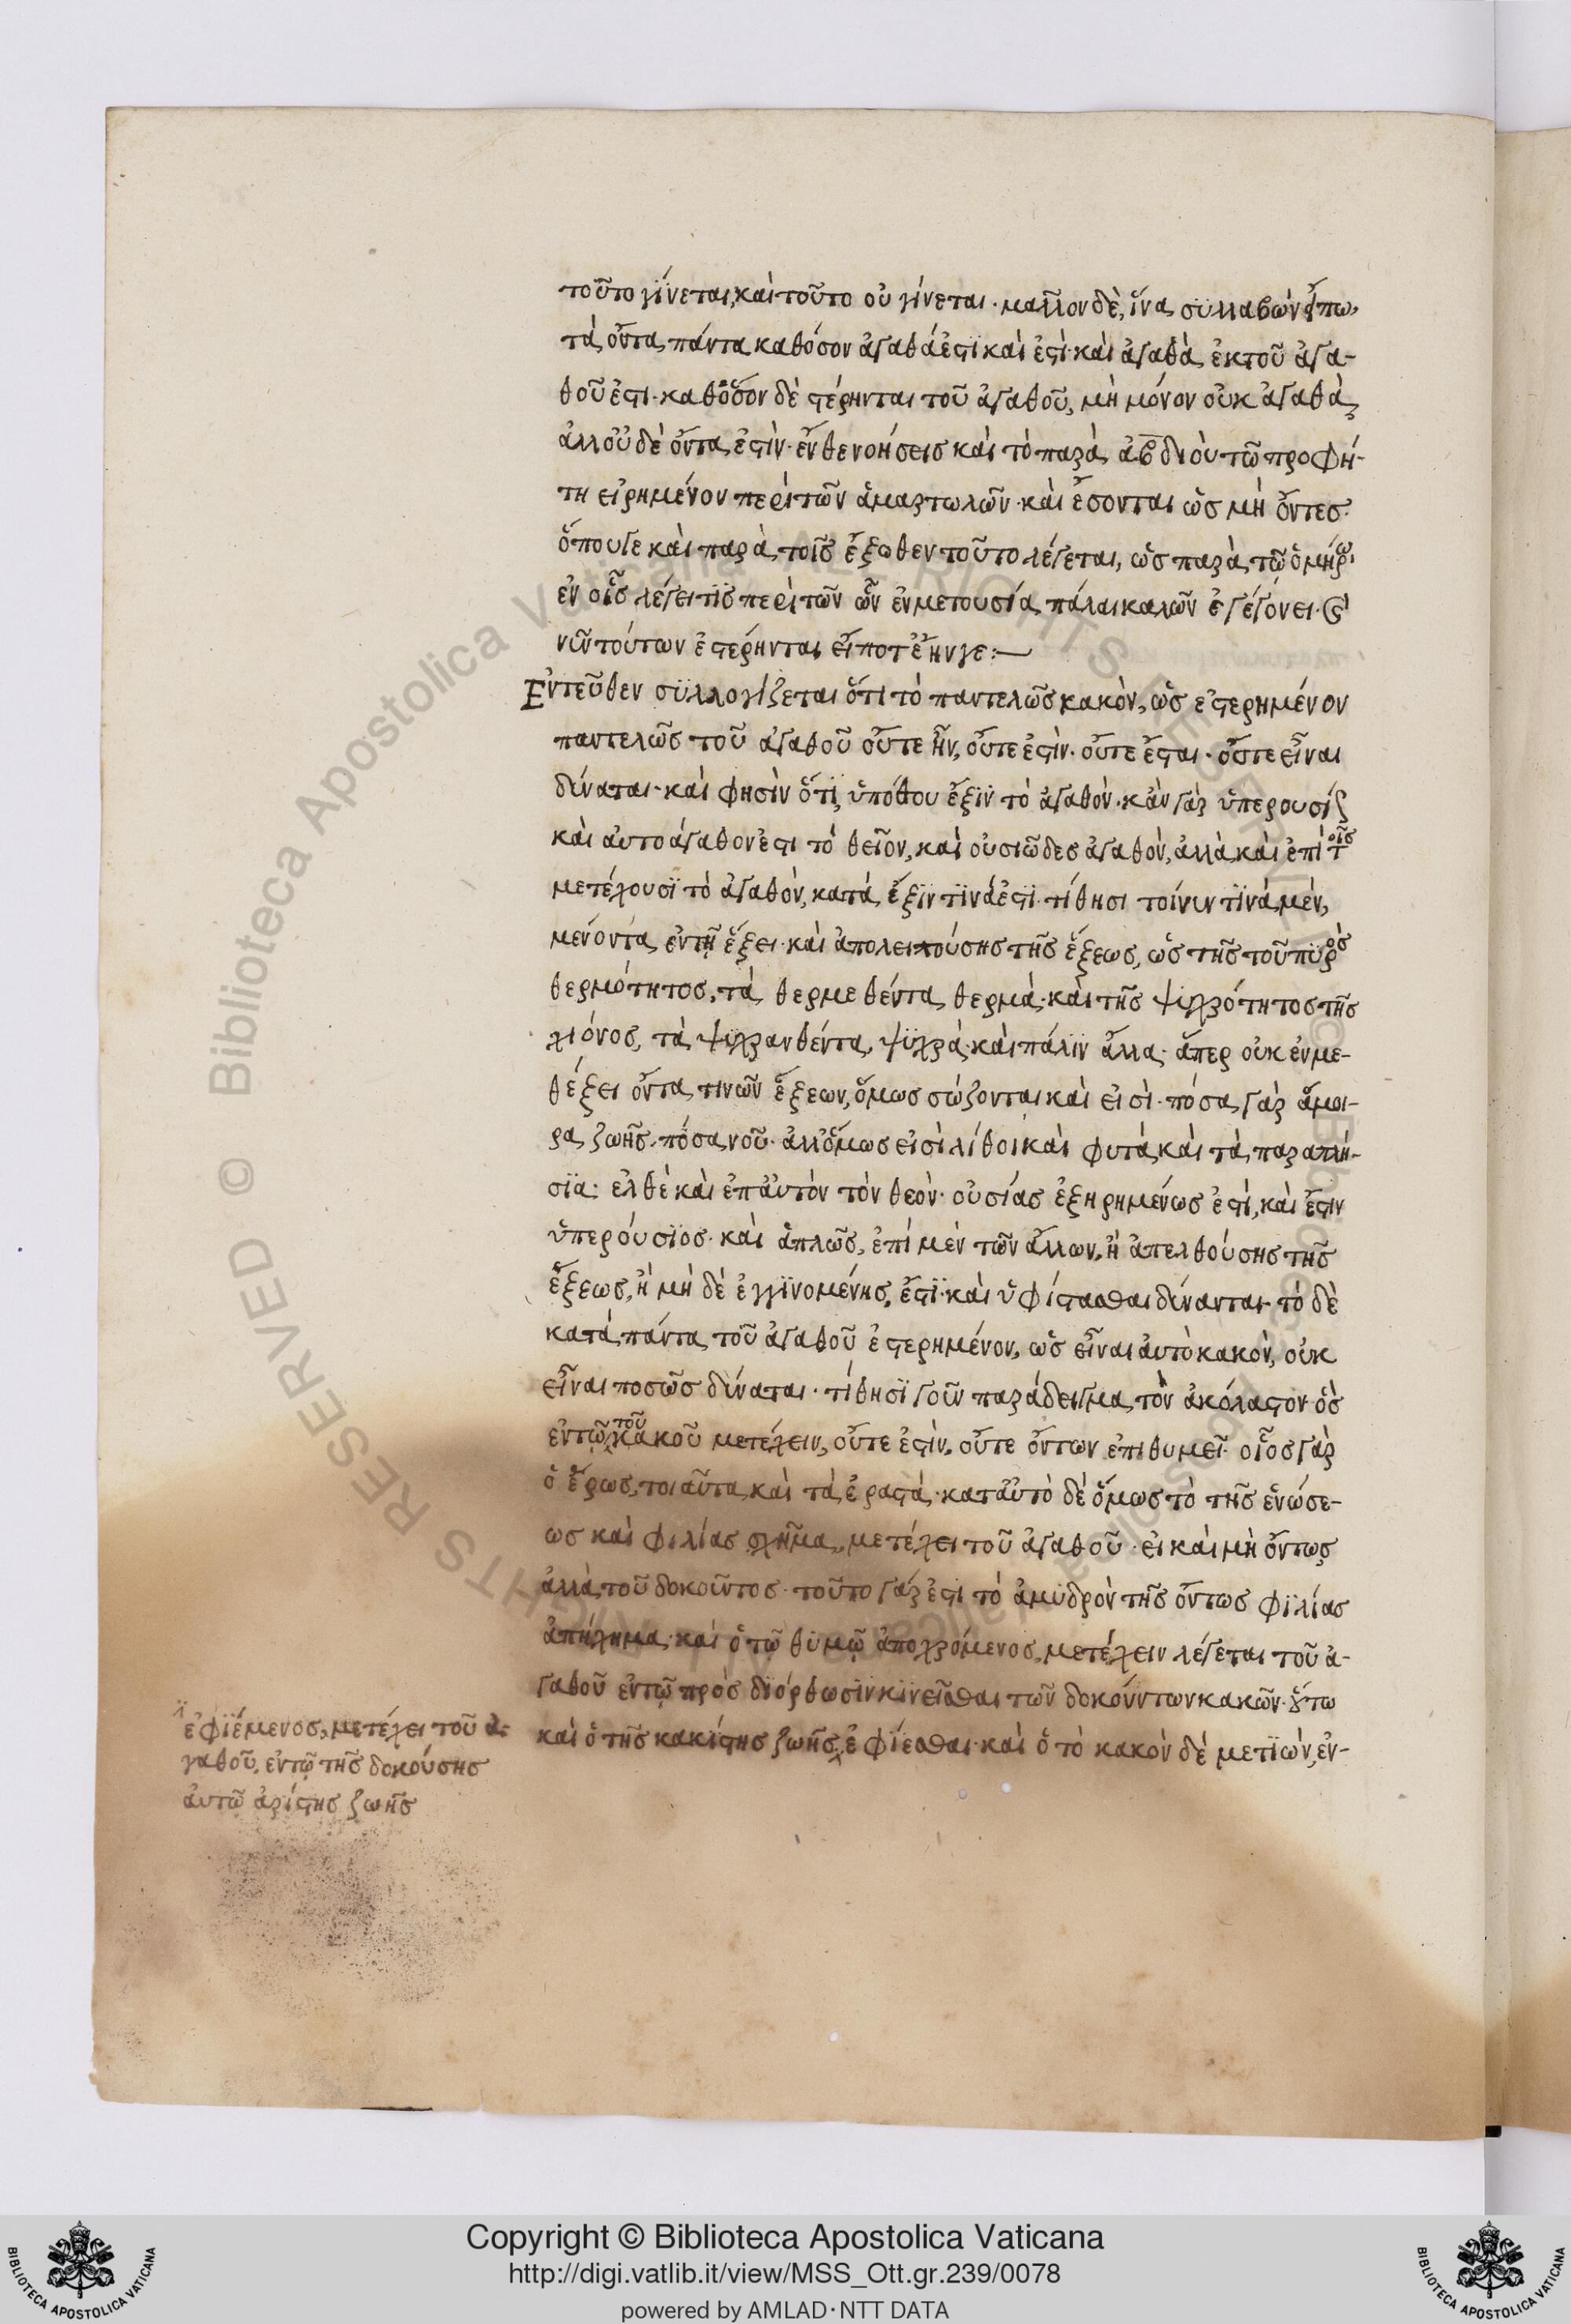 τοῦτο γίνεται, καὶ τοῦτο οὐ γίνεται· μᾶλλον δὲ, ἵνα συλλαβὼν εἴπω,
τὰ ὄντα πάντα καθόσον ἀγαθά ἐστι καὶ ἐστὶ· καὶ ἀγαθὰ ἐκ τοῦ ἀγα-
θοῦ ἐστι· καθόσον δὲ ἐστέρηνται τοῦ ἀγαθοῦ, μὴ μόνον οὐκ ἀγαθὰ,
ἀλλ' οὐδὲ ὄντα ἐστὶν· ἔνθεν νοήσεις καὶ τὸ παρὰ ἀβδιοὺ τῶ προφή-
τη εἰρημένον περὶ τῶν ἁμαρτωλῶν· καὶ ἔσονται ὡς μὴ ὄντες·
ὅπουγε καὶ παρὰ τοῖς ἔξωθεν τοῦτο λέγεται, ὡς παρὰ τῶ ὁμήρω
ἐν οἷς λέγει τὶς περὶ τῶν ὧν ἐν μετουσία πάλαι καλῶν ἐγεγόνει· καὶ
νῦν τούτων ἐστέρηνται εἴποτ' ἔην γε:—
Ἐντεῦθεν συλλογίζεται ὅτι τὸ παντελῶς κακὸν, ὡς ἐστερημένον
παντελῶς τοῦ ἀγαθοῦ οὔτε ἦν, οὔτε ἐστὶν· οὔτε ἔσται· οὔτε εἶναι
δύναται· καὶ φησὶν ὅτι, ὑπόθου ἕξιν τὸ ἀγαθὸν· κἂν γὰρ ὑπερουσί
καὶ αὐτοάγαθον ἐστι τὸ θεῖον, καὶ οὐσιῶδες ἀγαθὸν, ἀλλὰ καὶ ἐπὶ τοῖς
μετέχουσι τὸ ἀγαθὸν, κατὰ ἕξιν τινά ἐστι· τίθησι τοίνυν τινὰ μὲν,
μένοντα ἐν τῇ ἕξει· καὶ ἀπολειπούσης τῆς ἕξεως, ὡς τῆς τοῦ πυρὸς
θερμότητος, τὰ θερμεθέντα θερμὰ· καὶ τῆς ψυχρότητος τῆς
χιόνος, τὰ ψυχρανθέντα, ψυχρὰ· καὶ πάλιν ἄλλα· ἅπερ οὐκ ἐν με-
θέξει ὄντα τινῶν ἕξεων, ὅμως σώζονται καὶ εἰσὶ· πόσα γὰρ ἄμοι-
ρα ζωῆς· πόσα νοῦ· ἀλλ' ὅμως εἰσὶ λίθοι καὶ φυτὰ καὶ τὰ παραπλή-
σια· ἐλθὲ καὶ ἐπ' αὐτὸν τὸν θεὸν· οὐσίας ἐξῃρημένως ἐστὶ, καὶ ἔστιν
ὑπερούσιος· καὶ ἁπλῶς, ἐπὶ μὲν τῶν ἄλλων, ἢ ἀπελθούσης τῆς
ἕξεως, ἢ μὴ δὲ ἐγγινομένης, ἔστι· καὶ ὑφίστασθαι δύνανται· τὸ δὲ
κατὰ πάντα τοῦ ἀγαθοῦ ἐστερημένον, ὡς εἶναι αὐτὸ κακὸν, οὐκ
εἶναι ποσῶς δύναται· τίθησι γοῦν παράδειγμα τὸν ἀκόλαστον· ὃς
ἐν τῷ τοῦ κακοῦ μετέχειν, οὔτε ἐστὶν, οὔτε ὄντων ἐπιθυμεῖ· οἷος γὰρ
ὁ ἔρως, τοιαῦτα καὶ τὰ ἐραστά· κατ' αὐτὸ δὲ ὅμως τὸ τῆς ἑνώσε-
ως καὶ φιλίας σχῆμα, μετέχει τοῦ ἀγαθοῦ· εἰ καὶ μὴ ὄντως
ἀλλὰ τοῦ δοκοῦντος· τοῦτο γάρ ἐστι τὸ ἀμυδρὸν τῆς ὄντως φιλίας
ἀπήχημα· καὶ ὁ τῷ θυμῷ ἀποχρόμενος, μετέχειν λέγεται τοῦ ἀ-
γαθοῦ ἐν τῷ πρὸς διόρθωσιν κινεῖσθαι τῶν δοκούντων κακῶν· οὕτω
καὶ ὁ τῆς κακίστης ζωῆς ἐφίεσθαι· καὶ ὁ τὸ κακὸν δὲ μετιὼν, ἐν-
ἐφιέμενος, μετέχει τοῦ ἀ-
γαθοῦ, ἐν τῷ τῆς δοκούσης
αὐτῶ ἀρίστης ζωῆς
Copyright © Biblioteca Apostolica Vaticana
http://digi.vatlib.it/view/MSS_Ott.gr.239/0078
powered by AMLAD·NTT DATA